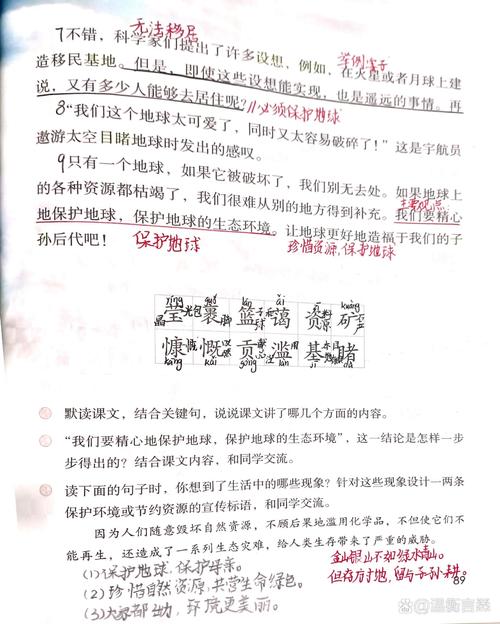 无法移居
7不错，科学家们提出了许多设想，例如，在火星或者月球上建
举例子
造移民基地。但是，即使这些设想能实现，也是遥远的事情。再
说，又有多少人能够去居住呢？//必须保护地球
8“我们这个地球太可爱了，同时又太容易破碎了！”这是宇航员
遨游太空目睹地球时发出的感叹。
9只有一个地球，如果它被破坏了，我们别无去处。如果地球上
的各种资源都枯竭了，我们很难从别的地方得到补充。我们要精心
主要观点
地保护地球，保护地球的生态环境。让地球更好地造福于我们的子
孙后代吧！ 保护地球 珍惜资源，保护地球
莹 裹 篮 蔼 资 矿
慷 慨 贡 滥 基 睹
默读课文，结合关键句，说说课文讲了哪几个方面的内容。
“我们要精心地保护地球，保护地球的生态环境”，这一结论是怎样一步
步得出的？结合课文内容，和同学交流。
读下面的句子时，你想到了生活中的哪些现象？针对这些现象设计一两条
保护环境或节约资源的宣传标语，和同学交流。
因为人们随意毁坏自然资源，不顾后果地滥用化学品，不但使它们不
能再生，还造成了一系列生态灾难，给人类生存带来了严重的威胁。
金山银山不如绿水青山。
(1)保护地球，保护母亲。
但存方寸地，留与子孙耕。
89
(2)珍惜自然资源，共营生命绿色。
(3)大家都动，环境更美丽。
@温衡言愿